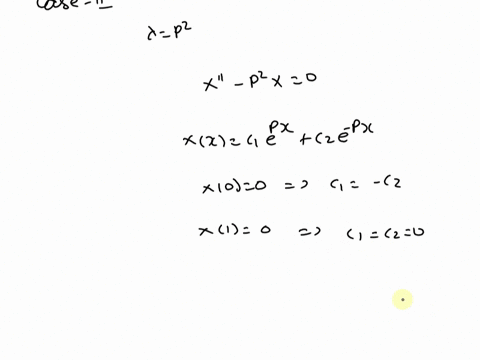 Case-II
λ=p²
x'' - p²x =0
x(x)= c₁ e^{px} + c₂ e^{-px}
x(0)=0 => c₁ = -c₂
x(1)=0 => c₁ = c₂=0